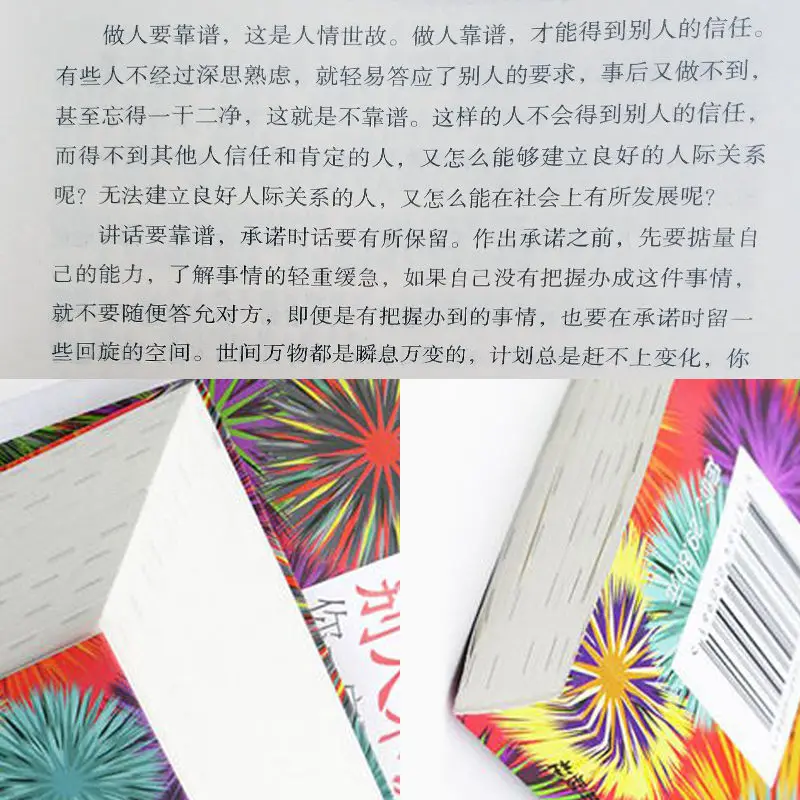 做人要靠谱，这是人情世故。做人靠谱，才能得到别人的信任。
有些人不经过深思熟虑，就轻易答应了别人的要求，事后又做不到，
甚至忘得一干二净，这就是不靠谱。这样的人不会得到别人的信任，
而得不到其他人信任和肯定的人，又怎么能够建立良好的人际关系
呢？无法建立良好人际关系的人，又怎么能在社会上有所发展呢？
讲话要靠谱，承诺时话要有所保留。作出承诺之前，先要掂量自
己的能力，了解事情的轻重缓急，如果自己没有把握办成这件事情，
就不要随便答允对方，即便是有把握办到的事情，也要在承诺时留一
些回旋的空间。世间万物都是瞬息万变的，计划总是赶不上变化，你
别人不
你
定价：29.80元